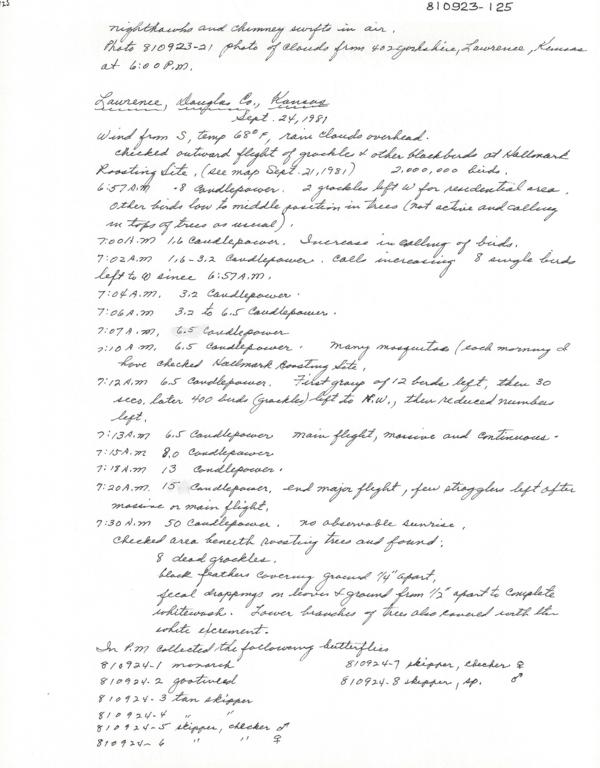 810923-125
nighthawks and chimney swifts in air.
Photo 810923-21 photo of clouds from 402 Yorkshire, Lawrence, Kansas
at 6:00 P.M.
Lawrence, Douglas Co., Kansas
Sept. 24, 1981
Wind from S, temp 68°F, rain clouds overhead.
Checked outward flight of grackles & other blackbirds at Hallmark
Roosting Site. (see map Sept. 21, 1981) 2,000,000 birds.
6:57 A.M .8 Candlepower. 2 grackles left W for residential area.
Other birds low to middle position in trees (not active and calling
in tops of trees as usual).
7:00 A.M 1.6 Candlepower. Increase in calling of birds.
7:02 A.M 1.6-3.2 Candlepower. Calls increasing 8 single birds
left to W since 6:57 A.M.
7:04 A.M. 3.2 Candlepower.
7:06 A.M 3.2 to 6.5 Candlepower.
7:07 A.M. 6.5 Candlepower
7:10 A.M. 6.5 Candlepower. Many mosquitos (each morning I
have checked Hallmark Roosting Site.
7:12 A.M 6.5 Candlepower. First group of 12 birds left, then 30
secs. later 400 birds (grackles) left to N.W., then reduced numbers
left.
7:13 A.M 6.5 Candlepower main flight, massive and continuous.
7:15 A.M 8.0 Candlepower
7:18 A.M 13 Candlepower.
7:20 A.M. 15 Candlepower, end major flight, few stragglers left after
massive or main flight.
7:30 A.M 50 Candlepower. no observable sunrise.
Checked area beneath roosting trees and found:
8 dead grackles.
black feathers covering ground 1/4" apart,
fecal droppings on leaves & ground from 1/2" apart to complete
whitewash. Lower branches of trees also covered with the
white excrement.
In P.M collected the following butterflies
810924-1 monarch 810924-7 skipper, checker ♀
810924-2 goatweed 810924-8 skipper, sp. ♂
810924-3 tan skipper
810924-4 " "
810924-5 skipper, checker ♂
810924-6 " " ♀